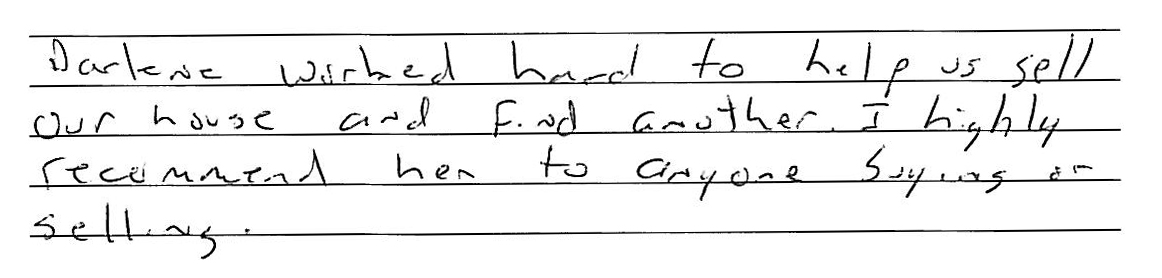 Darlene worked hard to help us sell
our house and find another. I highly
recommend her to anyone buying or
selling.